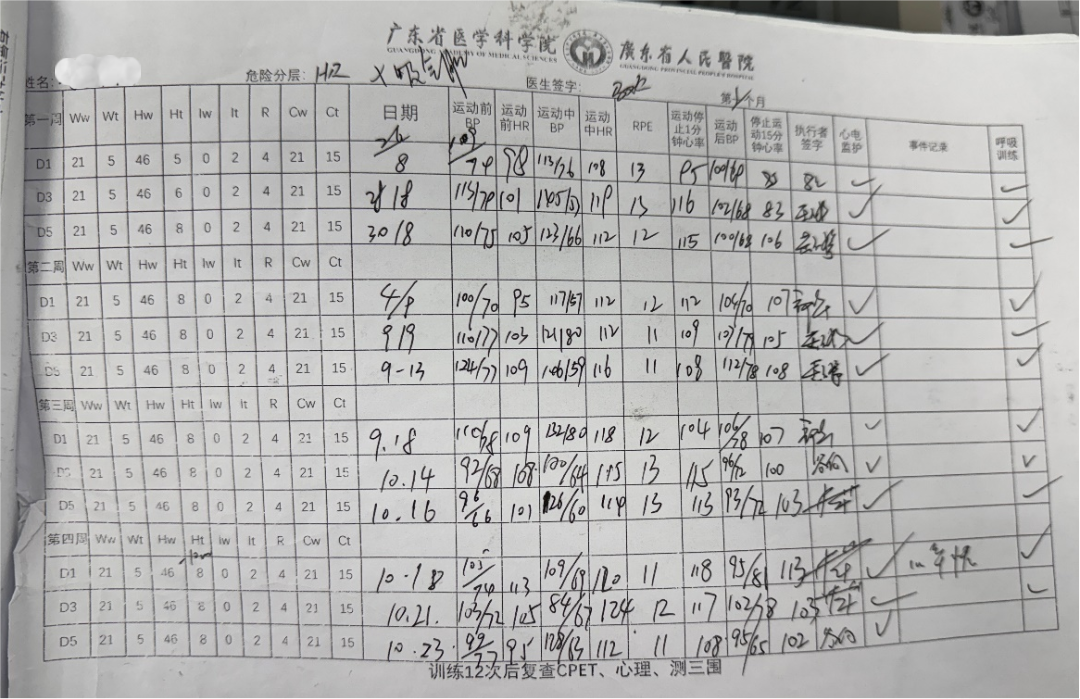 广东省医学科学院 廣東省人民醫院
GUANGDONG ACADEMY OF MEDICAL SCIENCES GUANGDONG PROVINCIAL PEOPLE'S HOSPITAL
姓名: 危险分层: 医生签字: 第 个月
第一周 Ww Wt Hw Ht Iw It R Cw Ct 日期 运动前BP 运动前HR 运动中BP 运动中HR RPE 运动停止1分钟心率 运动后BP 停止运动15分钟心率 执行者签字 心电监护 事件记录 呼吸训练
D1 21 5 46 5 0 2 4 21 15 98 113/76 108 13 95 100/69 ✓ ✓
D3 21 5 46 6 0 2 4 21 15 101 119 13 116 102/68 83 ✓ ✓
D5 21 5 46 8 0 2 4 21 15 30/8 110/75 105 123/66 112 12 115 100/68 106 ✓ ✓
第二周 Ww Wt Hw Ht Iw It R Cw Ct
D1 21 5 46 8 0 2 4 21 15 4/9 100/70 95 117/57 112 12 112 104/70 107 ✓ ✓
D3 21 5 46 8 0 2 4 21 15 9/9 110/77 103 121/80 112 11 109 107/79 105 ✓ ✓
D5 21 5 46 8 0 2 4 21 15 9-13 124/77 109 106/59 116 11 108 112/78 108 ✓ ✓
第三周 Ww Wt Hw Ht Iw It R Cw Ct
D1 21 5 46 8 0 2 4 21 15 9.18 110/78 109 132/80 118 12 104 106/78 107 ✓ ✓
D3 21 5 46 8 0 2 4 21 15 10.14 92/68 108 115 13 115 100 ✓ ✓
D5 21 5 46 8 0 2 4 21 15 10.16 96/66 101 126/60 114 13 113 93/72 103 ✓ ✓
第四周 Ww Wt Hw Ht Iw It R Cw Ct
D1 21 5 46 8 0 2 4 21 15 10.18 103/74 113 109/69 120 11 118 95/81 113 ✓ ✓
D3 21 5 46 8 0 2 4 21 15 10.21. 103/72 105 84/67 124 12 117 102/78 103 ✓ ✓
D5 21 5 46 8 0 2 4 21 15 10.23 99/77 95 128/63 112 11 108 95/65 102 ✓
训练12次后复查CPET、心理、测三围